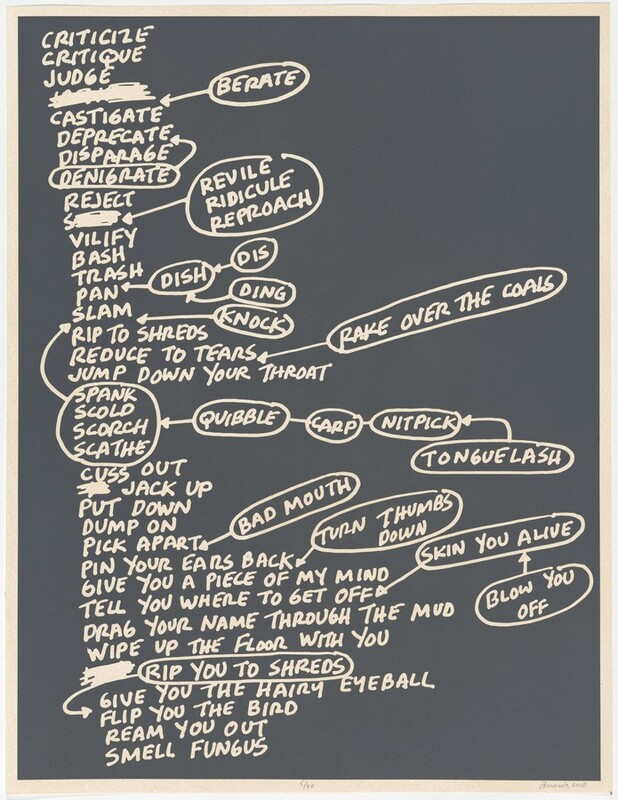 CRITICIZE
CRITIQUE
JUDGE
BERATE
CASTIGATE
DEPRECATE
DISPARAGE
DENIGRATE
REJECT
REVILE
RIDICULE
REPROACH
VILIFY
BASH
TRASH
DISH
DIS
PAN
DING
SLAM
KNOCK
RIP TO SHREDS
RAKE OVER THE COALS
REDUCE TO TEARS
JUMP DOWN YOUR THROAT
SPANK
SCOLD
SCORCH
SCATHE
QUIBBLE
CARP
NITPICK
TONGUELASH
CUSS OUT
JACK UP
PUT DOWN
DUMP ON
BAD MOUTH
PICK APART
TURN THUMBS
DOWN
PIN YOUR EARS BACK
SKIN YOU ALIVE
GIVE YOU A PIECE OF MY MIND
TELL YOU WHERE TO GET OFF
BLOW YOU
OFF
DRAG YOUR NAME THROUGH THE MUD
WIPE UP THE FLOOR WITH YOU
RIP YOU TO SHREDS
GIVE YOU THE HAIRY EYEBALL
FLIP YOU THE BIRD
REAM YOU OUT
SMELL FUNGUS